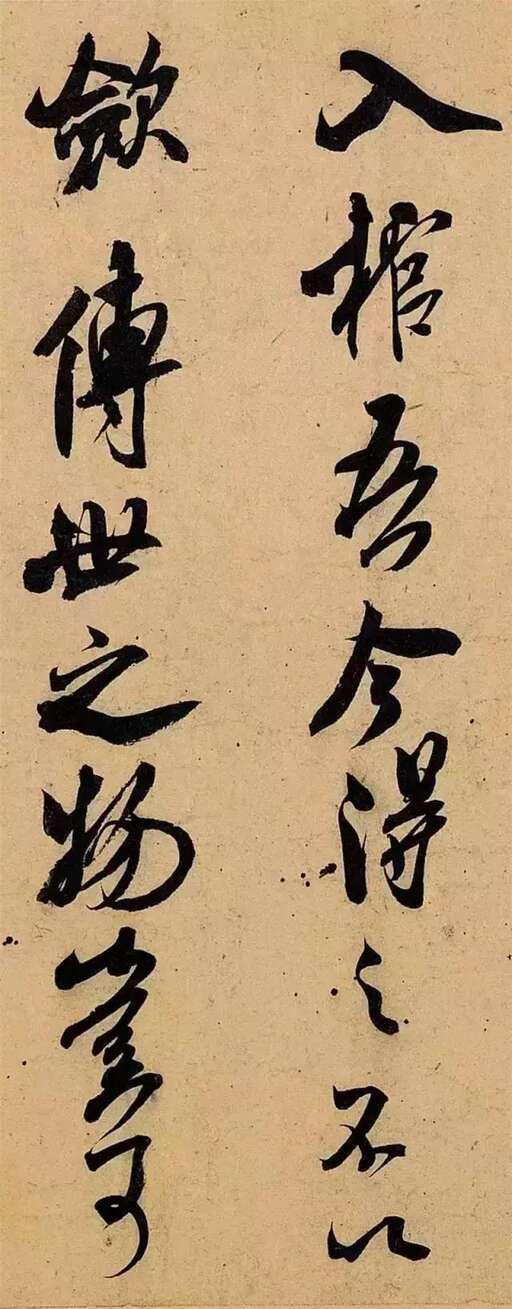 入棺吾今得之不以
斂傳世之物豈可